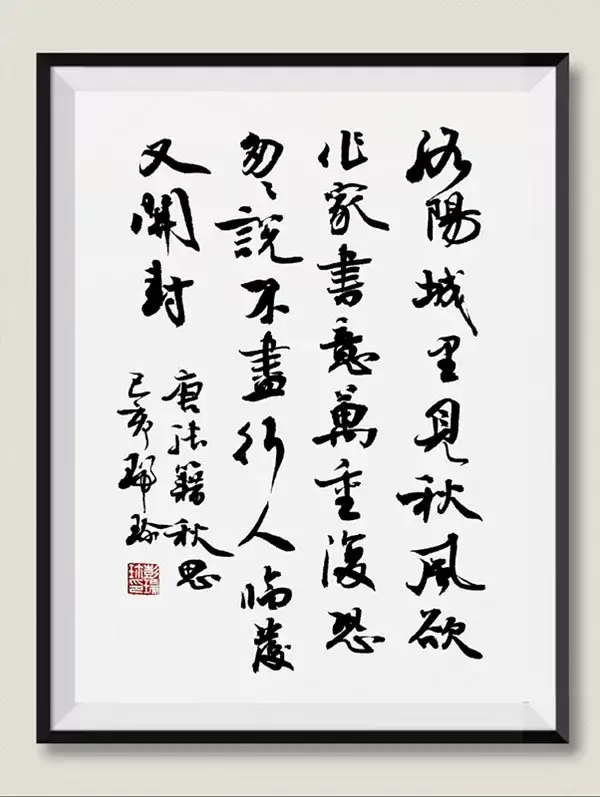 洛陽城里見秋風欲
作家書意萬重復恐
匆々說不盡行人臨發
又開封
唐張籍秋思
己亥